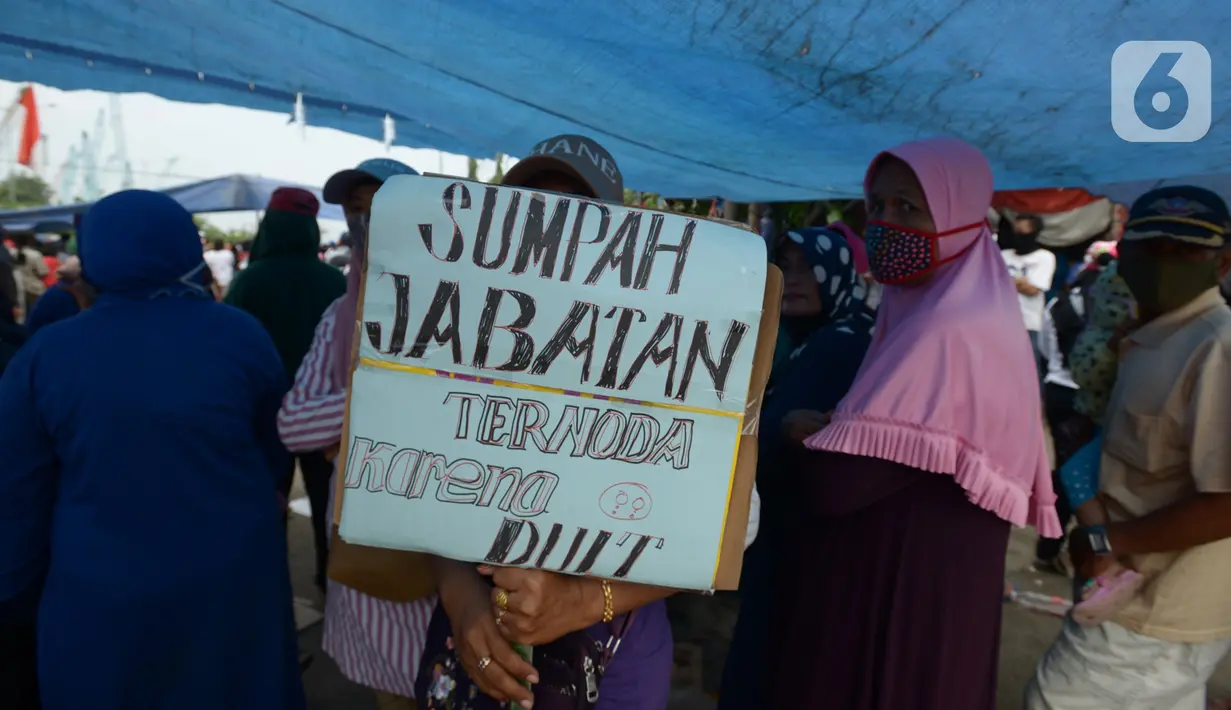 6
HANE
SUMPAH
JABATAN
TERNODA
Karena
DUIT